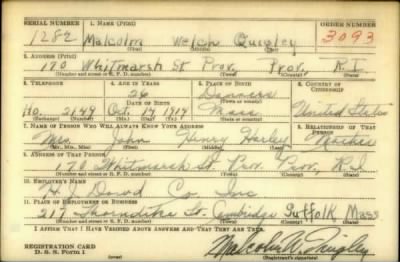 SERIAL NUMBER 1. NAME (Print) ORDER NUMBER
1282 Malcolm Welch Quigley 3093
(First) (Middle) (Last)
2. ADDRESS (Print)
170 Whitmarsh St Prov. Prov. R.I.
(Number and street or R. F. D. number) (Town) (County) (State)
3. TELEPHONE 4. AGE IN YEARS 5. PLACE OF BIRTH 6. COUNTRY OF CITIZENSHIP
26 Danvers
DATE OF BIRTH (Town or county)
Ho. 2149 Oct. 14 1914 Mass United States
(Exchange) (Number) (Mo.) (Day) (Yr.) (State or country)
7. NAME OF PERSON WHO WILL ALWAYS KNOW YOUR ADDRESS 8. RELATIONSHIP OF THAT PERSON
Mrs. John Henry Harley Mother
(Mr., Mrs., Miss) (First) (Middle) (Last)
9. ADDRESS OF THAT PERSON
170 Whitmarsh St. Prov. Prov. R.I.
(Number and street or R. F. D. number) (Town) (County) (State)
10. EMPLOYER'S NAME
H. J. Dowd Co Inc
11. PLACE OF EMPLOYMENT OR BUSINESS
217 Thorndike St. Cambridge Suffolk Mass
(Number and street or R. F. D. number) (Town) (County) (State)
I AFFIRM THAT I HAVE VERIFIED ABOVE ANSWERS AND THAT THEY ARE TRUE.
REGISTRATION CARD
D. S. S. Form 1 Malcolm W. Quigley
(Registrant's signature)